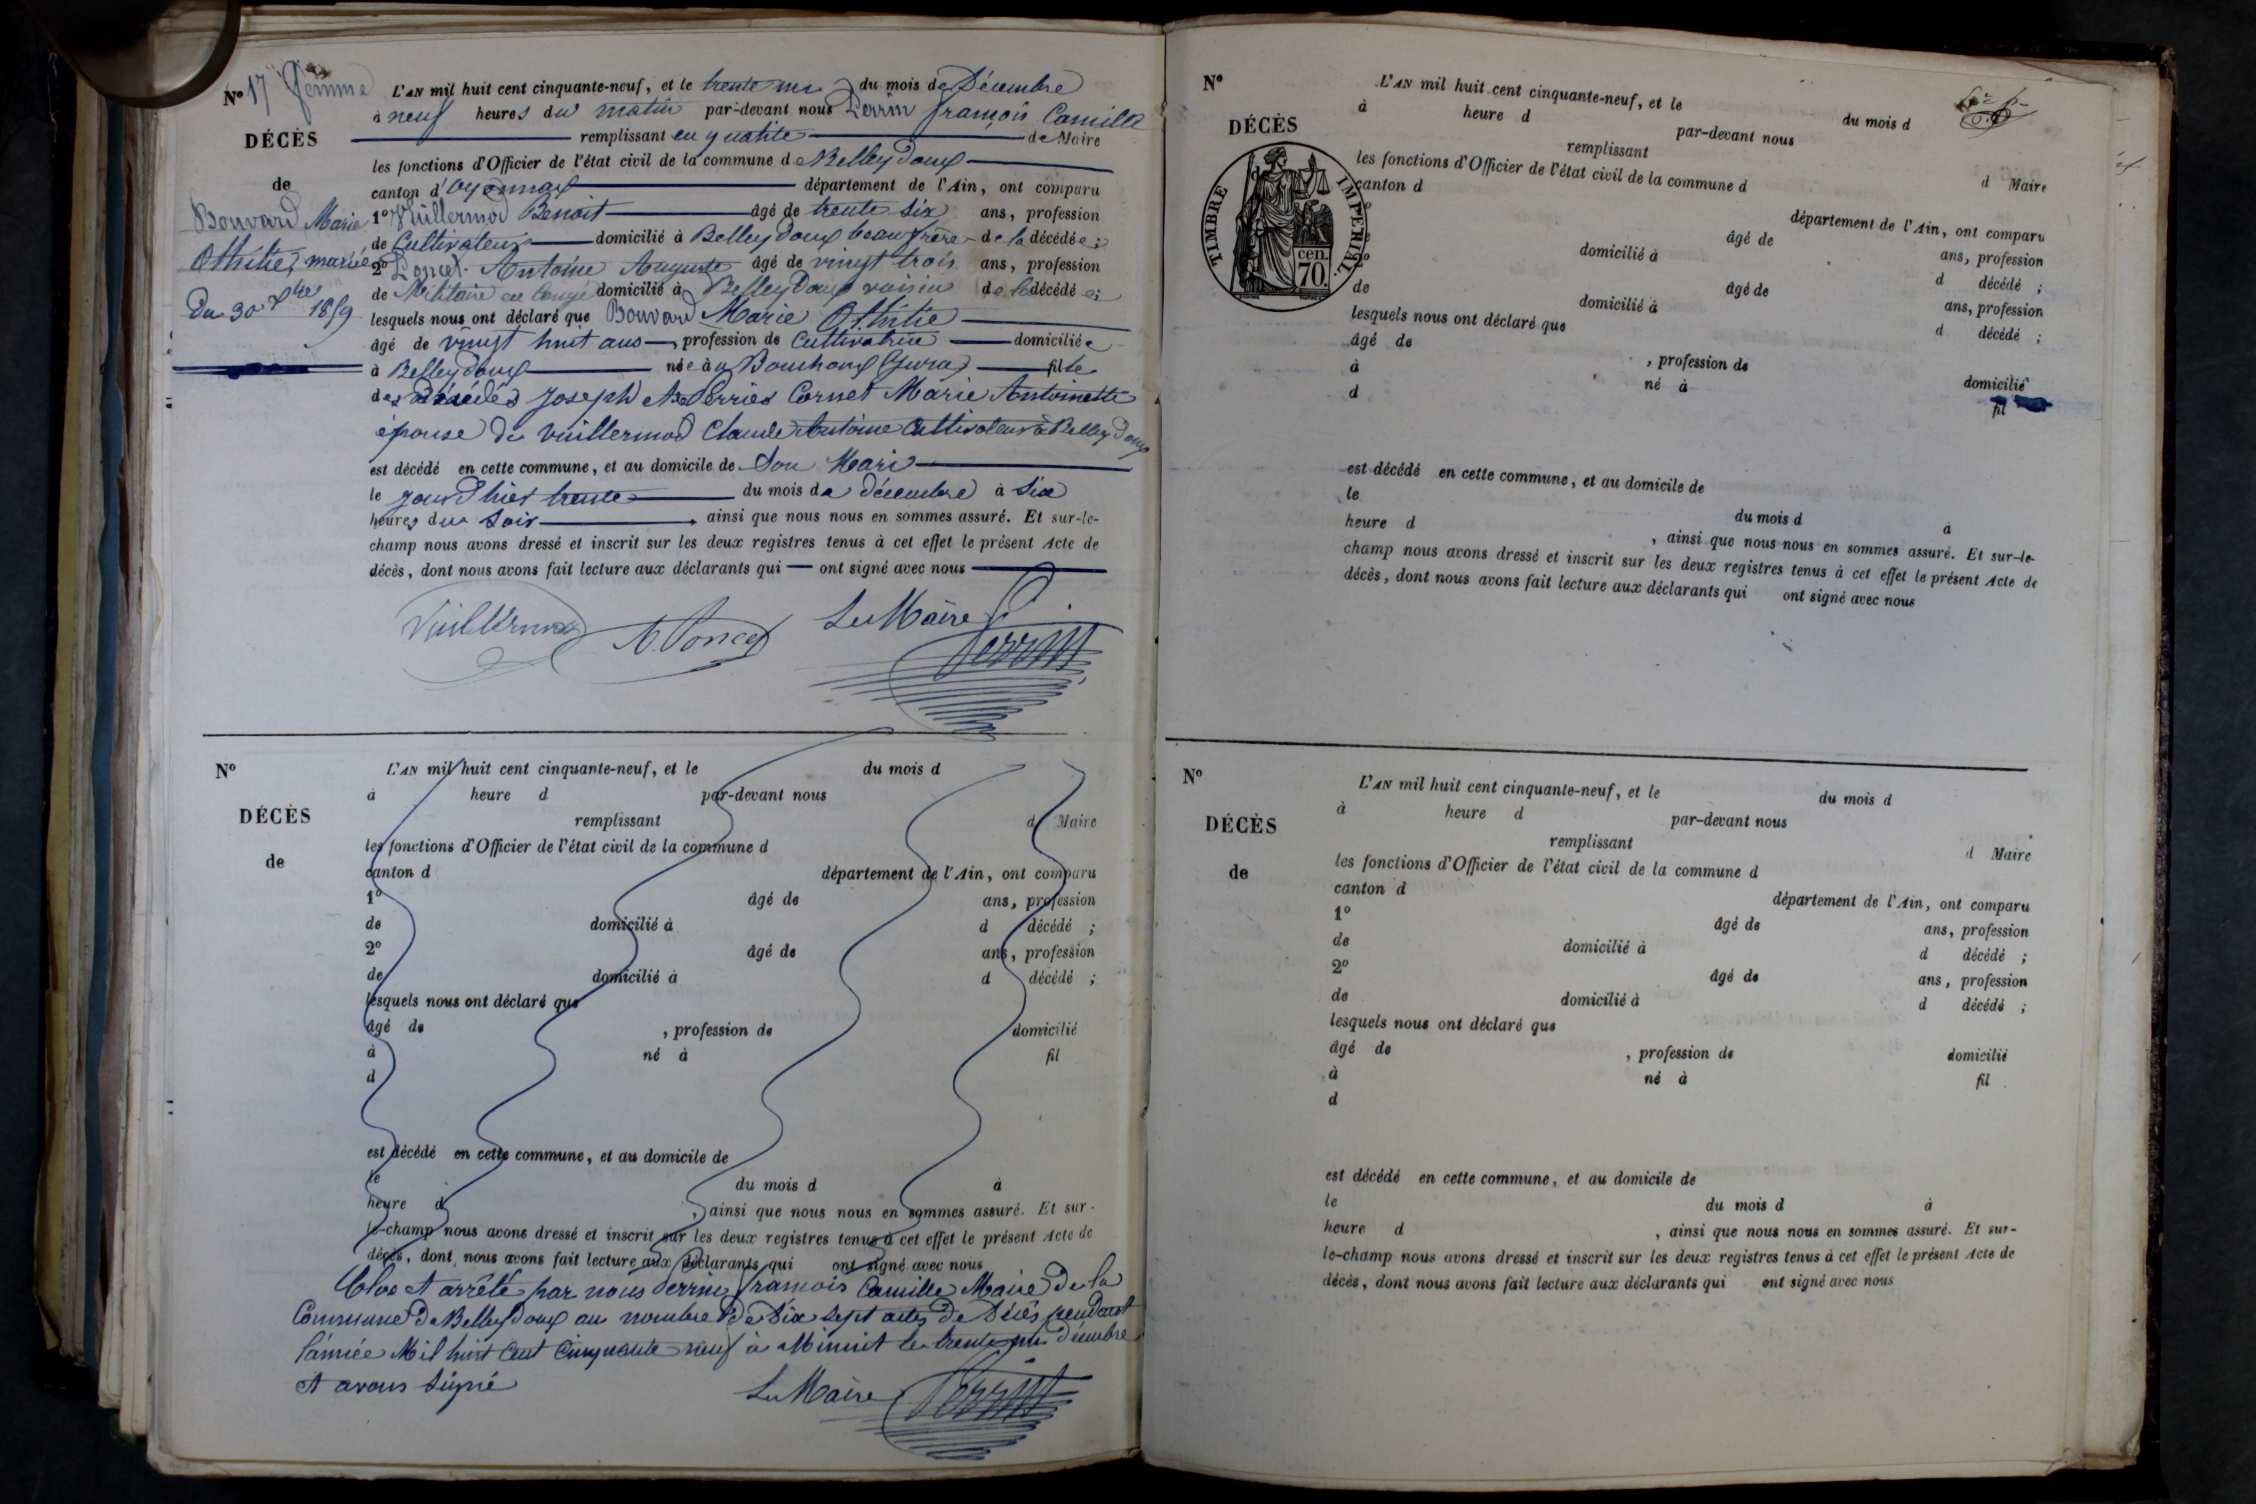 N° 17 femme
DÉCÈS
de
Bouvard Marie
Othilie, mariée
Du 30 Xbre 1859
L'AN mil huit cent cinquante-neuf, et le trente un du mois de Décembre
à neuf heures du matin par-devant nous Perrin françois Camille
remplissant en qualité de Maire
les fonctions d'Officier de l'état civil de la commune de Belleydoux
canton d'Oyonnax département de l'Ain, ont comparu
1° Vuillermod Benoit âgé de trente six ans, profession
de Cultivateur domicilié à Belleydoux beau frère de la décédée;
2° Poncet Antoine Auguste âgé de vingt trois ans, profession
de Militaire en Congé domicilié à Belleydoux voisin de la décédée;
lesquels nous ont déclaré que Bouvard Marie Othilie
âgé de vingt huit ans, profession de Cultivatrice domiciliée
à Belleydoux née à Bouchoux (Jura) fille
des décédés Joseph et Perrier Cornet Marie Antoinette
épouse de Vuillermod Claude Antoine Cultivateur à Belleydoux
est décédé en cette commune, et au domicile de Son Mari
le jour d'hier trente du mois de décembre à Six
heures du Soir, ainsi que nous nous en sommes assuré. Et sur-le-
champ nous avons dressé et inscrit sur les deux registres tenus à cet effet le présent Acte de
décès, dont nous avons fait lecture aux déclarants qui ont signé avec nous
Vuillermoz A. Poncet Le Maire Perrin
N°
DÉCÈS
de
L'AN mil huit cent cinquante-neuf, et le du mois d
à heure d par-devant nous
remplissant d Maire
les fonctions d'Officier de l'état civil de la commune d
canton d département de l'Ain, ont comparu
1° âgé de ans, profession
de domicilié à d décédé ;
2° âgé de ans, profession
de domicilié à d décédé ;
lesquels nous ont déclaré que
âgé de , profession de domicilié
à né à fil
d
est décédé en cette commune, et au domicile de
le du mois d à
heure d , ainsi que nous nous en sommes assuré. Et sur-
le-champ nous avons dressé et inscrit sur les deux registres tenus à cet effet le présent Acte de
décès, dont nous avons fait lecture aux déclarants qui ont signé avec nous
Clos et arrêté par nous Perrin françois Camille Maire de la
Commune de Belleydoux au nombre de Dix Sept actes de Décès pendant
l'année Mil huit Cent Cinquante neuf à Minuit le trente un décembre
et avons Signé
Le Maire Perrin
N°
DÉCÈS
de
TIMBRE IMPÉRIAL
cen.
70.
L'AN mil huit cent cinquante-neuf, et le du mois d
à heure d par-devant nous
remplissant d Maire
les fonctions d'Officier de l'état civil de la commune d
canton d département de l'Ain, ont comparu
âgé de ans, profession
domicilié à d décédé ;
âgé de ans, profession
de domicilié à d décédé ;
lesquels nous ont déclaré que
âgé de , profession de domicilié
à né à fil
d
est décédé en cette commune, et au domicile de
le du mois d à
heure d , ainsi que nous nous en sommes assuré. Et sur-le-
champ nous avons dressé et inscrit sur les deux registres tenus à cet effet le présent Acte de
décès, dont nous avons fait lecture aux déclarants qui ont signé avec nous
N°
DÉCÈS
de
L'AN mil huit cent cinquante-neuf, et le du mois d
à heure d par-devant nous
remplissant d Maire
les fonctions d'Officier de l'état civil de la commune d
canton d département de l'Ain, ont comparu
1° âgé de ans, profession
de domicilié à d décédé ;
2° âgé de ans, profession
de domicilié à d décédé ;
lesquels nous ont déclaré que
âgé de , profession de domicilié
à né à fil
d
est décédé en cette commune, et au domicile de
le du mois d à
heure d , ainsi que nous nous en sommes assuré. Et sur-
le-champ nous avons dressé et inscrit sur les deux registres tenus à cet effet le présent Acte de
décès, dont nous avons fait lecture aux déclarants qui ont signé avec nous